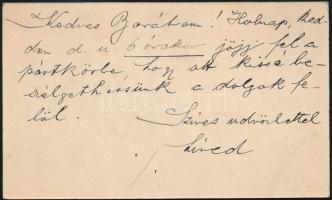 Kedves Barátom! Holnap, ked-
den d. u. 6 órakor jöjj fel a
pártkörbe hogy ott kissé be-
szélgethessünk a dolgok fe-
löl.
Szives üdvözlettel
híved